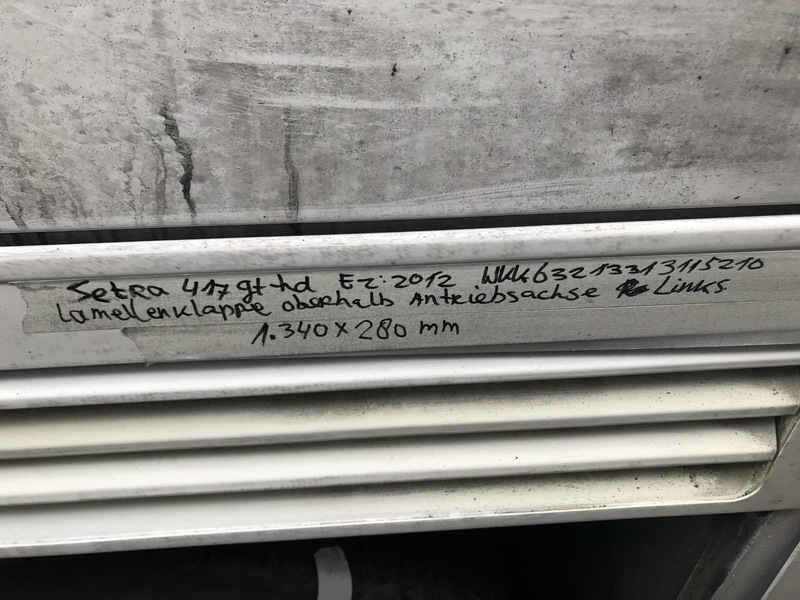 Setra 417 gt-hd Ez:2012 WKK63213313115210
Lamellenklappe oberhalb Antriebsachse Links
1.340 x 280 mm